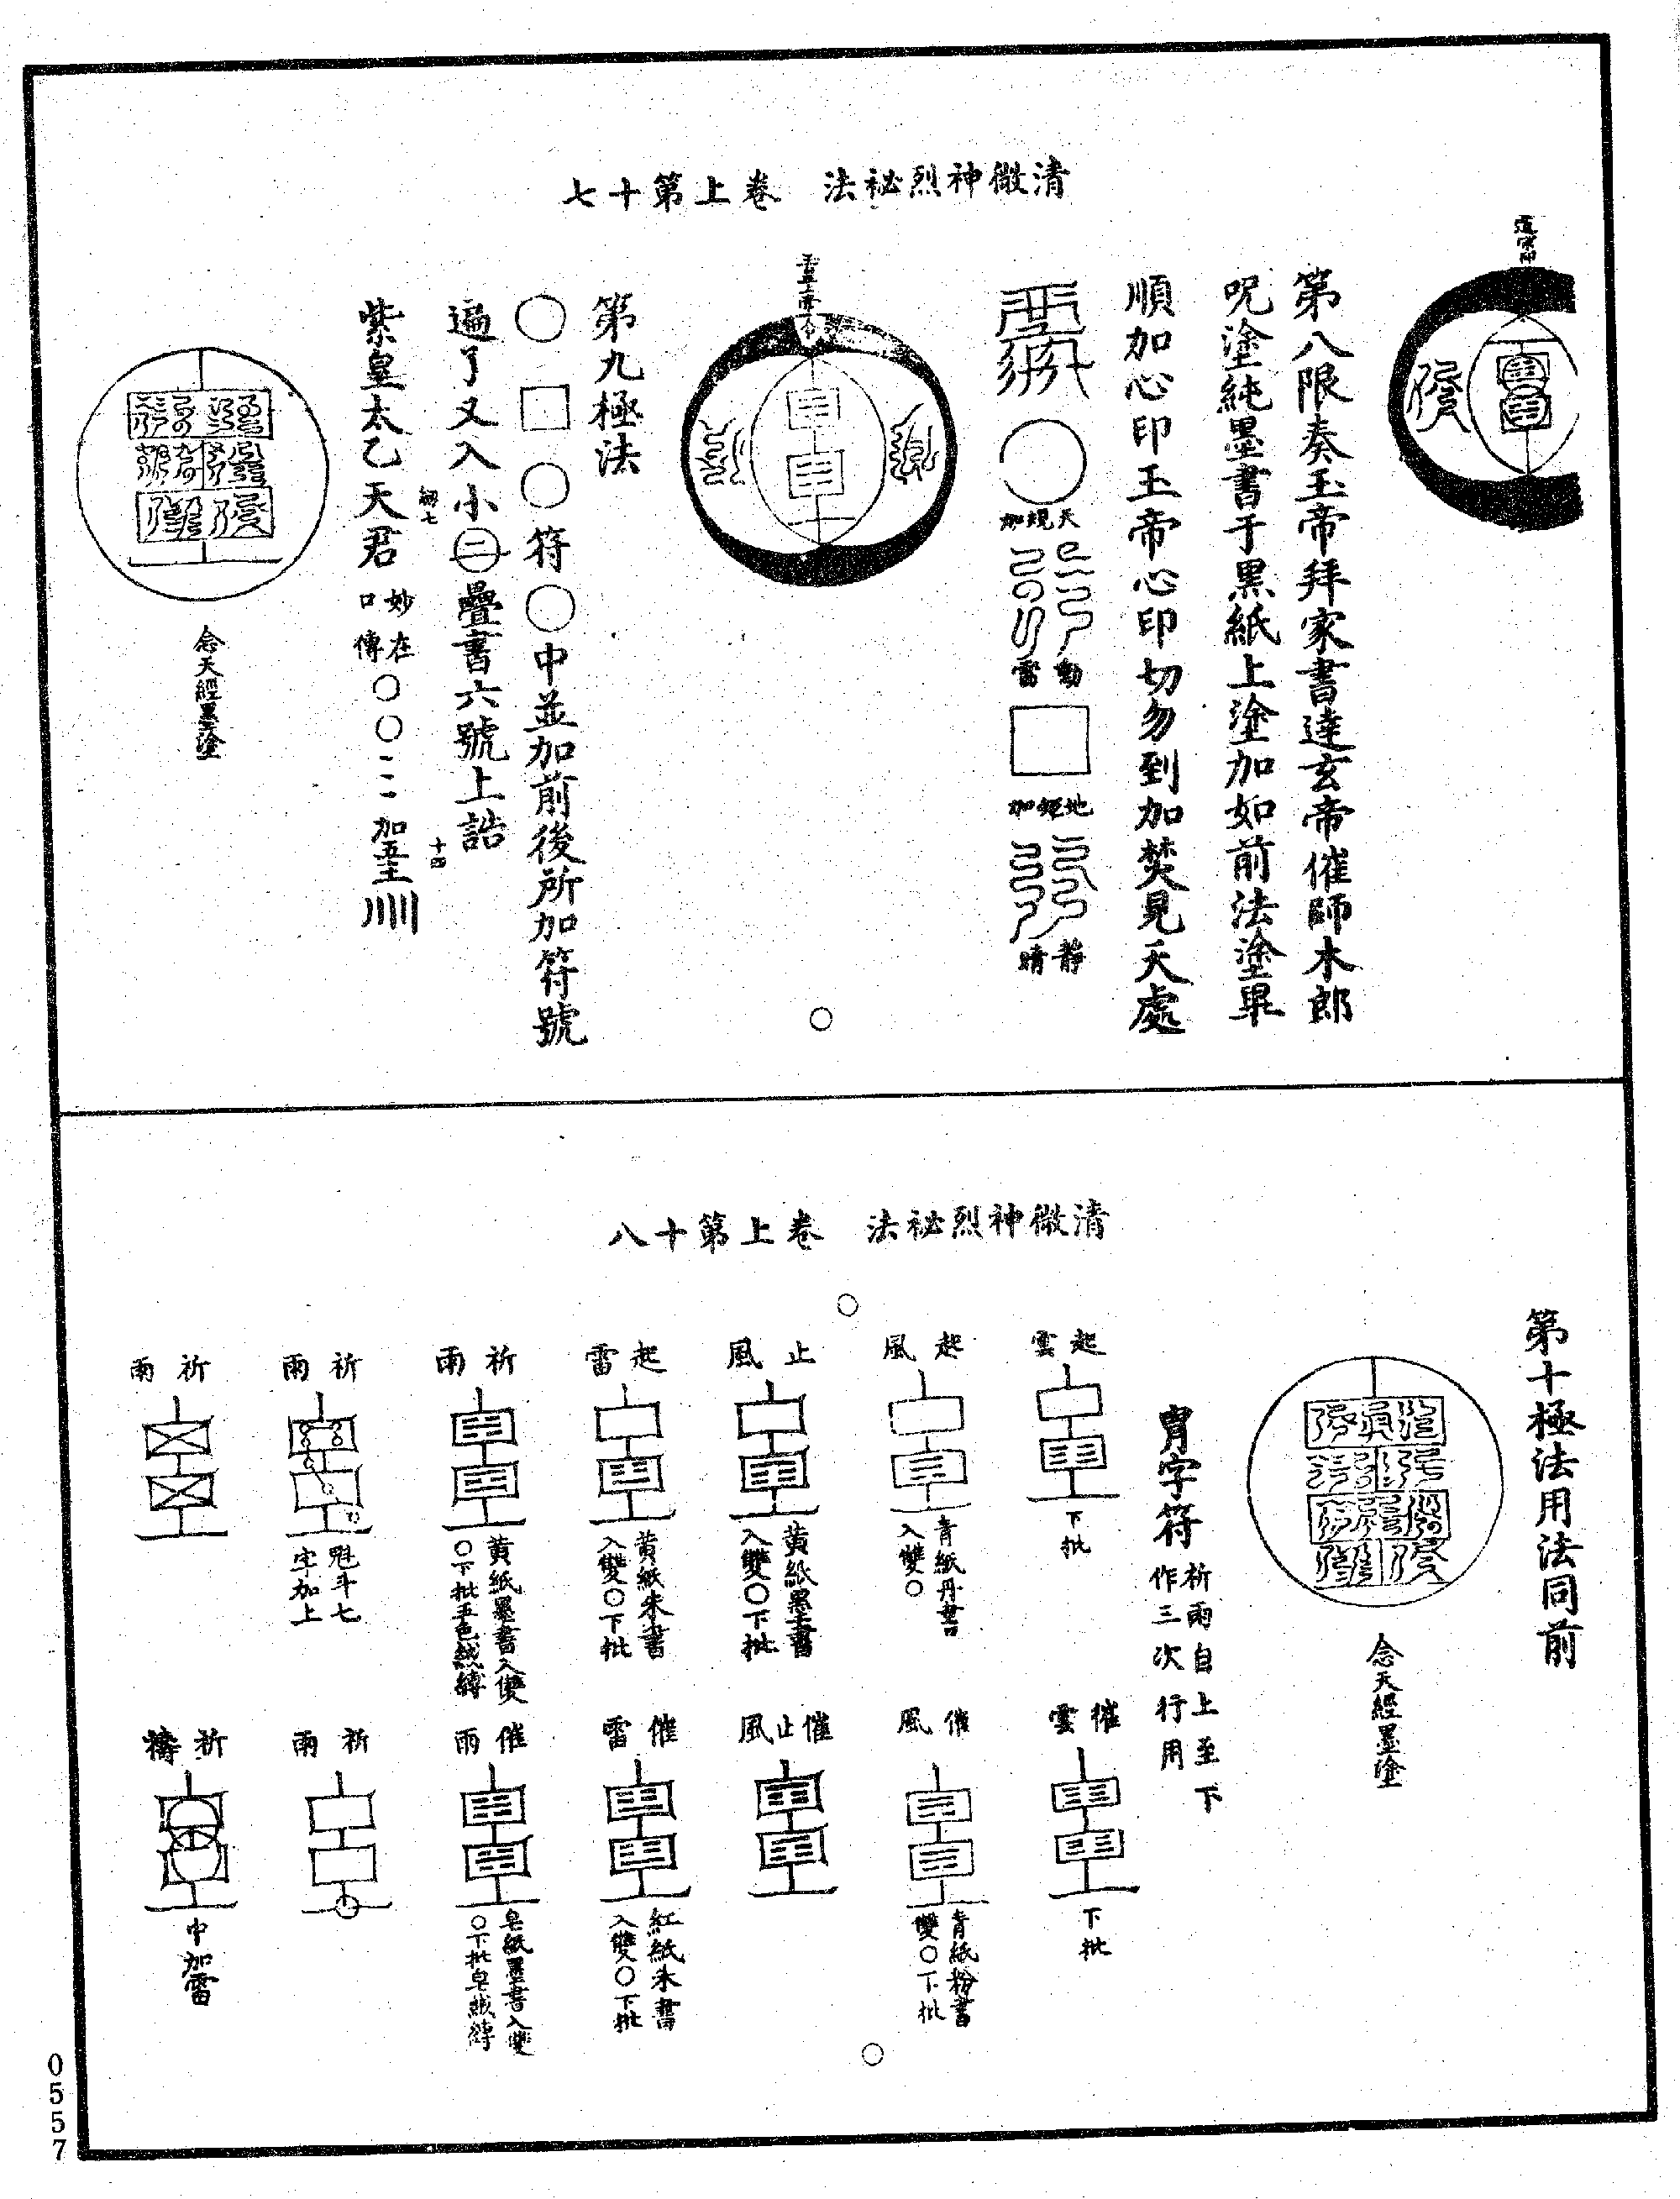 清微神烈祕法　卷上第十七
第八限奏玉帝拜家書達玄帝催師木郎
呪塗純墨書于黑紙上塗加如前法塗畢
順加心印玉帝心印切勿到加焚見天處
天規加
動雷
地矩加
靜晴
第九極法
○□○符○中並加前後所加符號
遍了又入小㊁疊書六號上誥
紫皇太乙天君 妙在口傳○○
十四
念天經墨塗
清微神烈祕法　卷上第十八
第十極法用法同前
念天經墨塗
冑字符 祈雨自上至下作三次行用
起雲
下批
催雲
下批
起風
青紙丹書入雙○
催風
青紙粉書雙○下批
止風
黃紙墨書入雙○下批
催止風
起雷
黃紙朱書入雙○下批
催雷
紅紙朱書入雙○下批
祈雨
黃紙墨書入雙○下批五色絨縛
催雨
皂紙墨書入雙○下批皂絨縛
祈雨
魁斗七字加上
祈雨
祈雨
祈禱
中加雷
0557